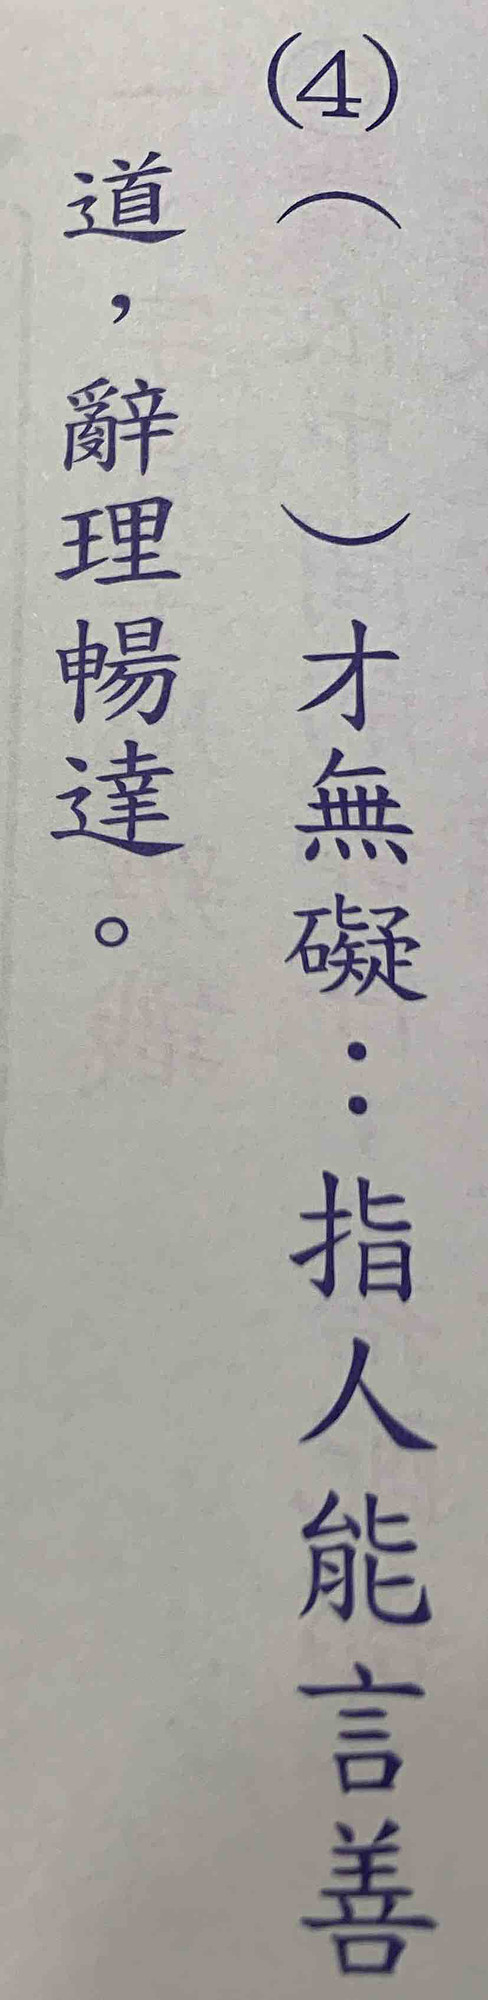 (4)（　　）才無礙：指人能言善
道，辭理暢達。